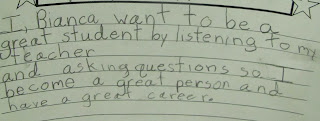 I, Bianca want to be a
great student by listening to my
teacher
and asking questions so I
become a great person and
have a great career.